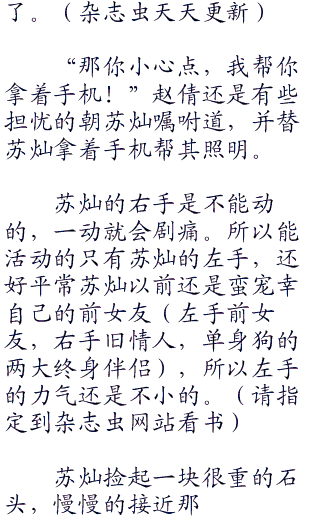 了。（杂志虫天天更新）
“那你小心点，我帮你
拿着手机！”赵倩还是有些
担忧的朝苏灿嘱咐道，并替
苏灿拿着手机帮其照明。
苏灿的右手是不能动
的，一动就会剧痛。所以能
活动的只有苏灿的左手，还
好平常苏灿以前还是蛮宠幸
自己的前女友（左手前女
友，右手旧情人，单身狗的
两大终身伴侣），所以左手
的力气还是不小的。（请指
定到杂志虫网站看书）
苏灿捡起一块很重的石
头，慢慢的接近那